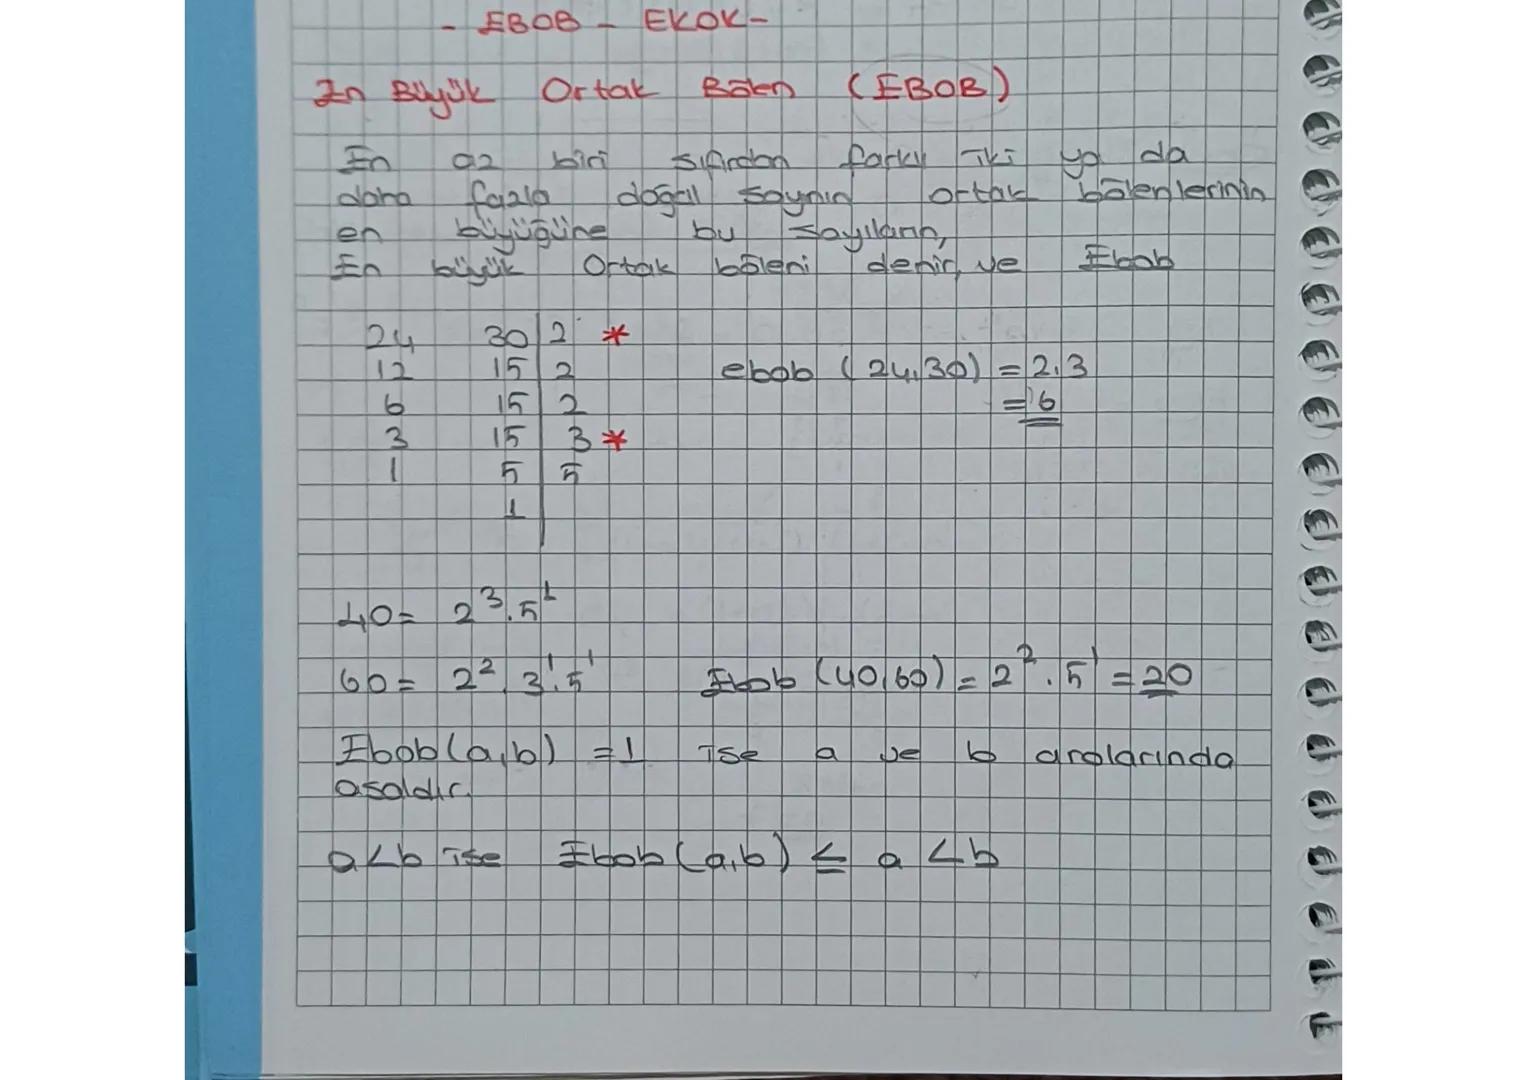 - EBOB - EKOK-
En Büyük Ortak Bölen (EBOB)
En az biri sıfırdan farklı iki ya da
daha fazla doğal sayının ortak bölenlerinin
en büyüğüne bu sayıların,
En büyük Ortak böleni denir, ve Ebob
24 30 2 *
12 15 2 ebob (24,30) = 2.3
6 15 2 = 6
3 15 3 *
1 5 5
1
40 = 2³.5¹
60 = 2².3¹.5¹ Ebob (40,60) = 2².5¹ = 20
Ebob(a,b) = 1 ise a ve b aralarında
asaldır.
a<b ise Ebob(a,b) ≤ a <b